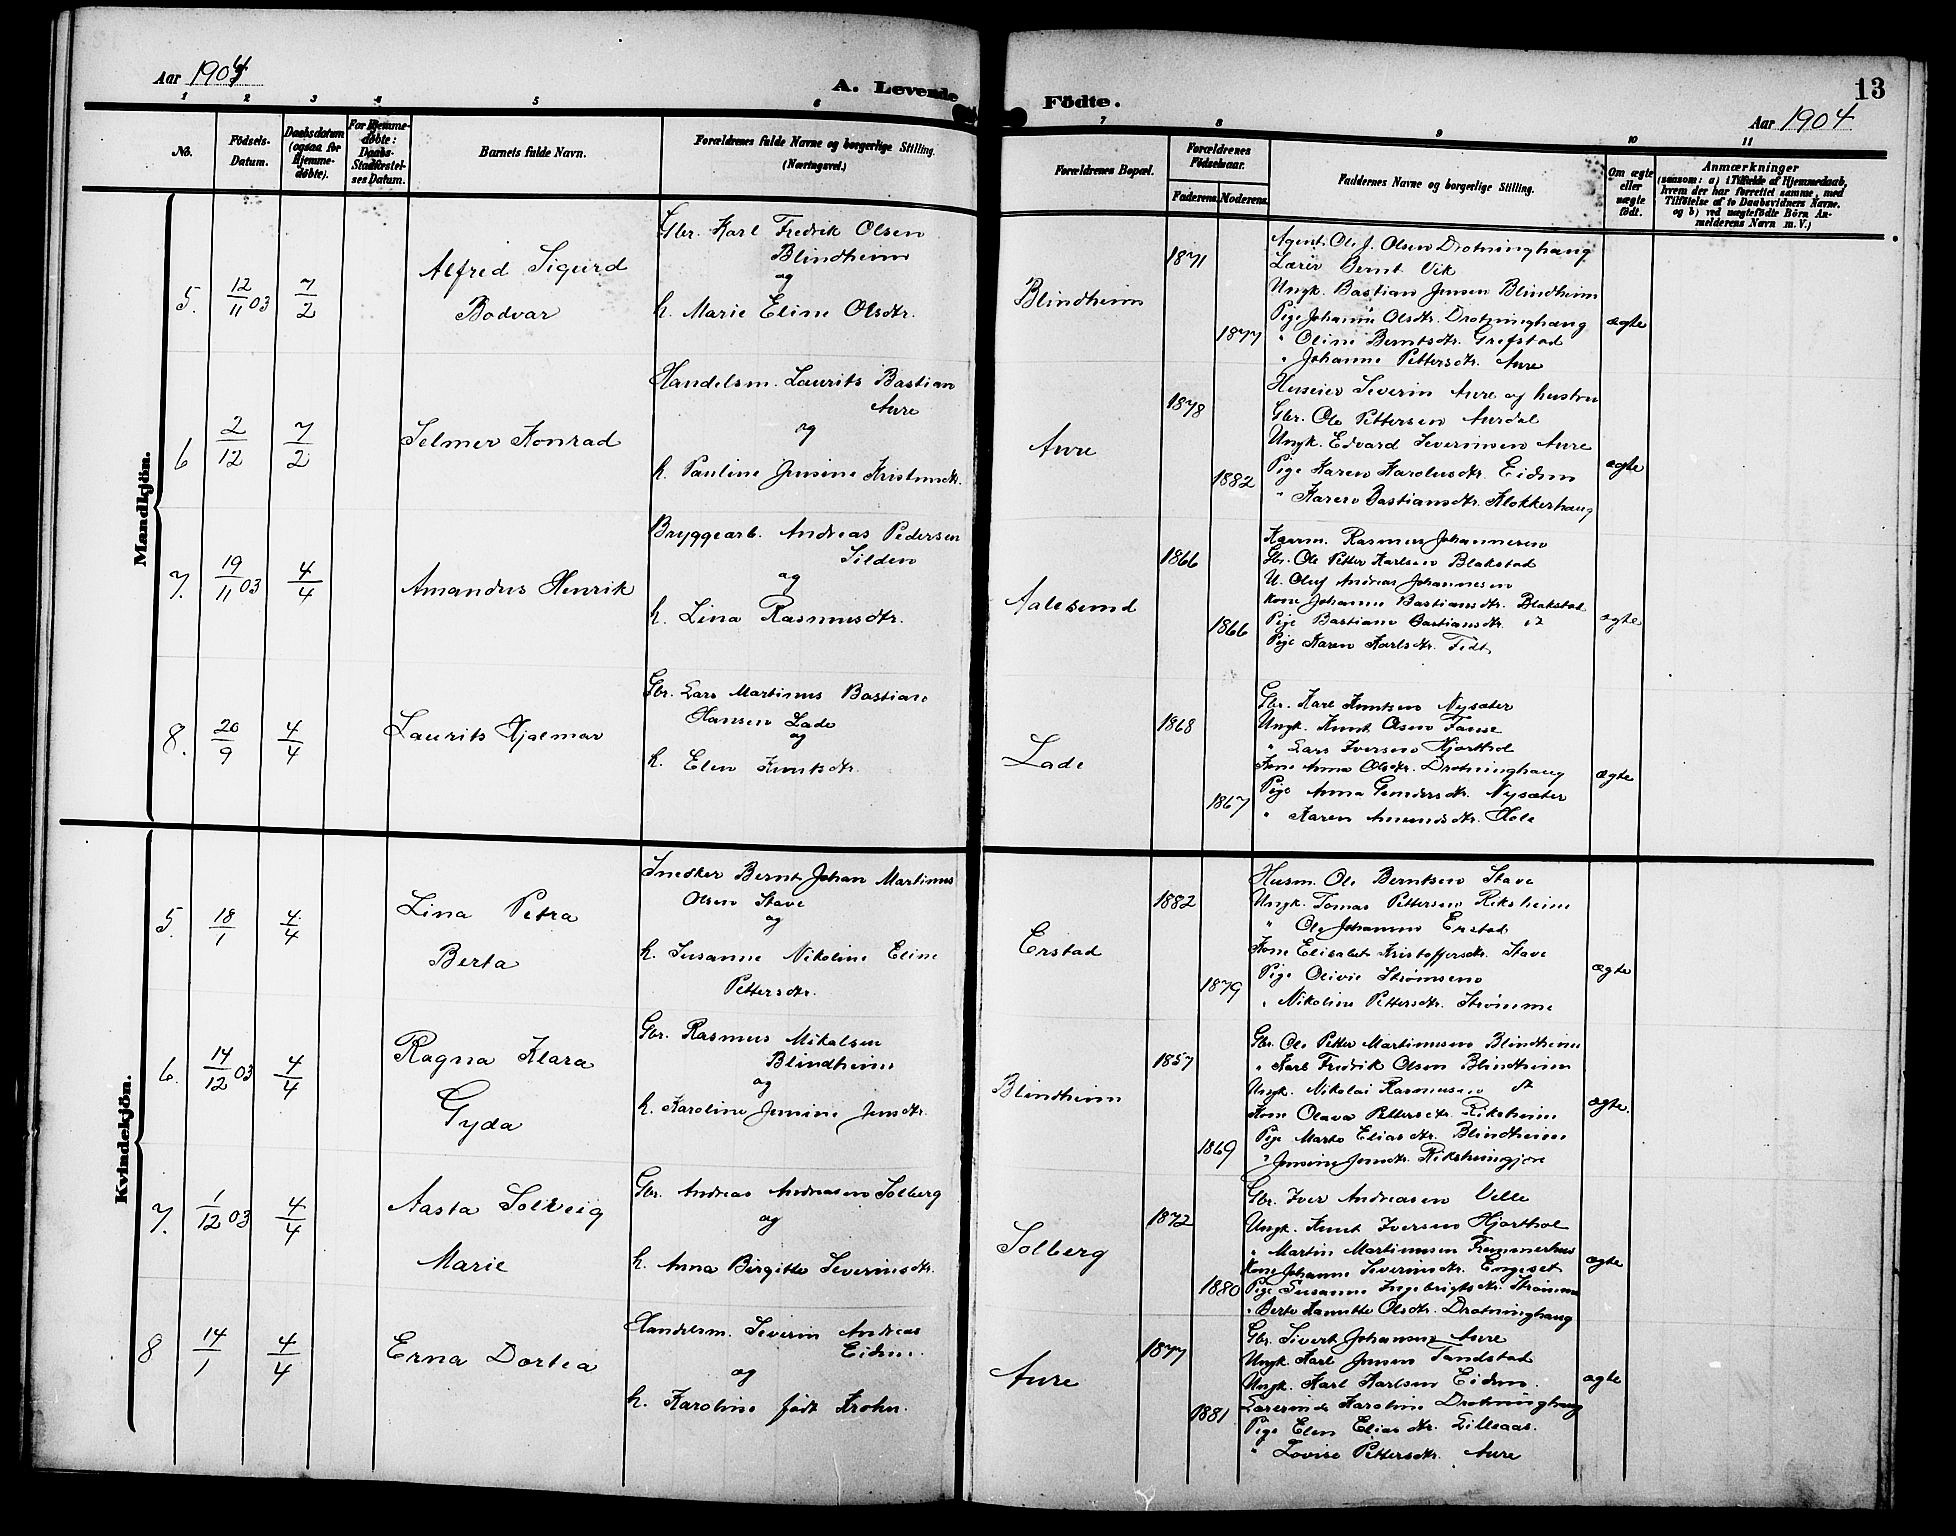 Aar 1904
A. Levende
1 2 3 4 5 6
No.
Födsels-
Datum.
Daabsdatum
(ogsaa for
Hjemme-
døbte).
For Hjemme-
døbte:
Daabs-
Stadfæstel-
ses Datum.
Barnets fulde Navn.
Forældrenes fulde Navne og borgerlige Stilling.
(Næringsvei.)
Mandkjön.
5. 12/11 03 7/2
Alfred Sigurd
Bodvar
Gbr. Karl Fredrik Olsen
Blindheim
og
h. Marie Eline Olsdtr.
6 2/12 7/2
Selmer Konrad
Handelsm. Laurits Bastian
Aure
og
h. Pauline Jensine
7. 19/11 03 4/4
Amandus Henrik
Bryggearb. Andreas Pedersen
Silden
og
h. Lina Rasmusdtr.
8. 20/9 4/4
Laurits Hjalmar
Gbr. Lars Martinus Bastian
Hansen Lade
og
h. Elen Knutsdtr.
Kvindekjön.
5. 18/1 4/4
Lina Petra
Berta
Snedker Bernt Johan Martinus
Olsen Stave
og
h. Susanne Nikoline Eline
Pettersdtr.
6. 14/12 03 4/4
Ragna Klara
Gyda
Gbr. Rasmus Mikalsen
Blindheim
og
h. Karoline Jensine Jensdtr.
7. 1/12 03 4/4
Aasta Solveig
Marie
Gbr. Andreas Andreasen Solberg
og
h. Anna Birgitte Severinsdtr.
8 14/1 4/4
Erna Dortea
Handelsm. Severin Andreas
Eidem.
og
h. Karoline født Krohn.
Födte.
13
Aar 1904
7 8 9 10 11
Forældrenes Bopæl.
Forældrenes
Födselsaar.
Faderens. Moderens.
Faddernes Navne og borgerlige Stilling.
Om ægte
eller
uægte
født.
Anmærkninger
(saasom: a) i Tilfælde af Hjemmedaab,
hvem der har forrettet samme, med
Tilföielse af to Daabsvidners Navne.
og b) ved uægtefödte Börn An-
melderens Navn m. V.)
Blindheim
1871
1877
Agent. Ole J. Olsen Drotninghaug
Lærer Bernt Vik
Ungk. Bastian Jensen Blindheim
Pige Johanne Olsdtr. Drotninghaug
" Oline Berntsdtr. Grefstad
" Johanne Pettersdtr. Aure
ægte
Aure
1878
1882
Huseier Severin Aure og hustru
Gbr. Ole Pettersen Aurdal
Ungk. Edvard Severinsen Aure
Pige Karen Karolusdtr. Eidem
" Karen Bastiansdtr. Klokkerhaug
ægte
Aalesund
1866
1866
Kaarm. Rasmus Johannesen
Gbr. Ole Petter Karlsen Blakstad
U. Oluf Andreas Johannesen
Kone Johanne Bastiansdtr. Blakstad
Pige Bastiane Bastiansdtr.
Pige Karen Karlsdtr.
ægte
Lade
1868
1867
Gbr. Karl Knutsen Nysæter
Ungk. Knut Olsen
" Lars Iversen Hjorthol
Kone Anna Olsdtr. Drotninghaug
Pige Anna Nysæter
" Karen Amundsdtr. Hole
ægte
Erstad
1882
1879
Husm. Ole Berntsen Stave
Ungk. Tomas Pettersen Riksheim
" Ole Johannes Erstad
Kone Elisabet Kristoffersdtr. Stave
Pige Olivie Strømsem
" Nikoline Pettersdtr. Strømme
ægte
Blindheim
1857
1869
Gbr. Ole Petter Martinusen Blindheim
" Karl Fredrik Olsen Blindheim
Ungk. Nikolai Rasmusen
Kone Olava Pettersdtr. Riksheim
Pige Marte Eliasdtr. Blindheim
" Jensine Jensdtr.
ægte.
Solberg
1872
1880
Gbr. Iver Andreasen Velle
Ungk. Knut Iversen Hjorthol
" Martin Martinusen
Kone Johanne Severinsdtr. Engeset
Pige Susanne Ingebrigtsdtr. Strømme
" Berte Olsdtr. Drotninghaug
ægte
Aure
1877
1881
Gbr. Sivert Johansen Aure
Ungk. Karl Jensen Tandstad
Ungk. Karl Karlsen Eidem.
Lærerinde Karoline Drotninghaug
Pige Elen Eliasdtr. Lilleaas.
" Lovise Pettersdtr. Aure
ægte